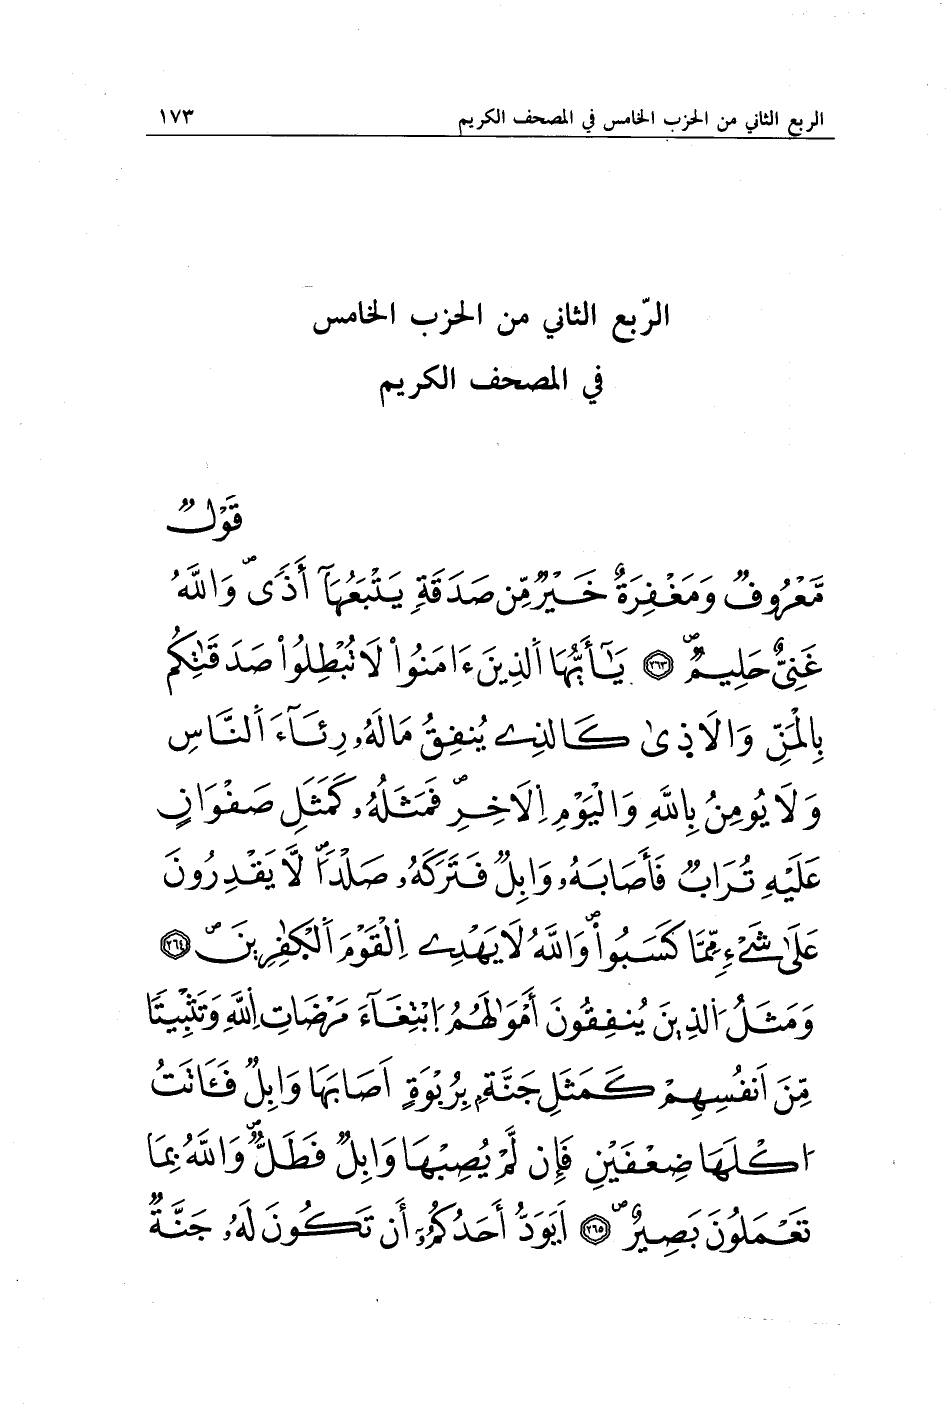 الربع الثاني من الحزب الخامس في المصحف الكريم ١٧٣
الرّبع الثاني من الحزب الخامس
في المصحف الكريم
قَوْلٌ
مَّعْرُوفٌ وَمَغْفِرَةٌ خَيْرٌ مِّن صَدَقَةٍ يَتْبَعُهَآ أَذىً وَاللَّهُ
غَنِيٌّ حَلِيمٌ ٢٦٣ يَٰٓأَيُّهَا اَ۬لذِينَ ءَامَنُواْ لَا تُبْطِلُواْ صَدَقَٰتِكُم
بِالْمَنِّ وَالَاذ۪ىٰ كَالذِے يُنفِقُ مَالَهُۥ رِئَآءَ اَ۬لنَّاسِ
وَلَا يُومِنُ بِاللَّهِ وَالْيَوْمِ اِ۬لَاخِرِ فَمَثَلُهُۥ كَمَثَلِ صَفْوَانٍ
عَلَيْهِ تُرَابٌ فَأَصَابَهُۥ وَابِلٌ فَتَرَكَهُۥ صَلْداً لَّا يَقْدِرُونَ
عَلَىٰ شَےْءٍ مِّمَّا كَسَبُواْ وَاللَّهُ لَا يَهْدِے اِ۬لْقَوْمَ اَ۬لْكٰ۪فِرِينَ ٢٦٤
وَمَثَلُ اُ۬لذِينَ يُنفِقُونَ أَمْوَٰلَهُمُ اُ۪بْتِغَآءَ مَرْضَاتِ اِ۬للَّهِ وَتَثْبِيتاً
مِّنَ اَنفُسِهِمْ كَمَثَلِ جَنَّةٍۭ بِرُبْوَةٍ اَصَابَهَا وَابِلٌ فَـَٔاتَتُ
ا۟كْلَهَا ضِعْفَيْنِ فَإِن لَّمْ يُصِبْهَا وَابِلٌ فَطَلٌّ وَاللَّهُ بِمَا
تَعْمَلُونَ بَصِيرٌ ٢٦٥ اَيَوَدُّ أَحَدُكُمُۥٓ أَن تَكُونَ لَهُۥ جَنَّةٌ